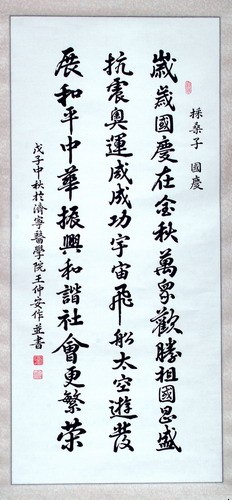 採桑子 國慶
歲歲國慶在金秋萬衆歡騰祖國昌盛
抗震奧運咸成功宇宙飛船太空遊發
展和平中華振興和諧社會更繁榮
戊子中秋於濟寧醫學院王仲安作並書